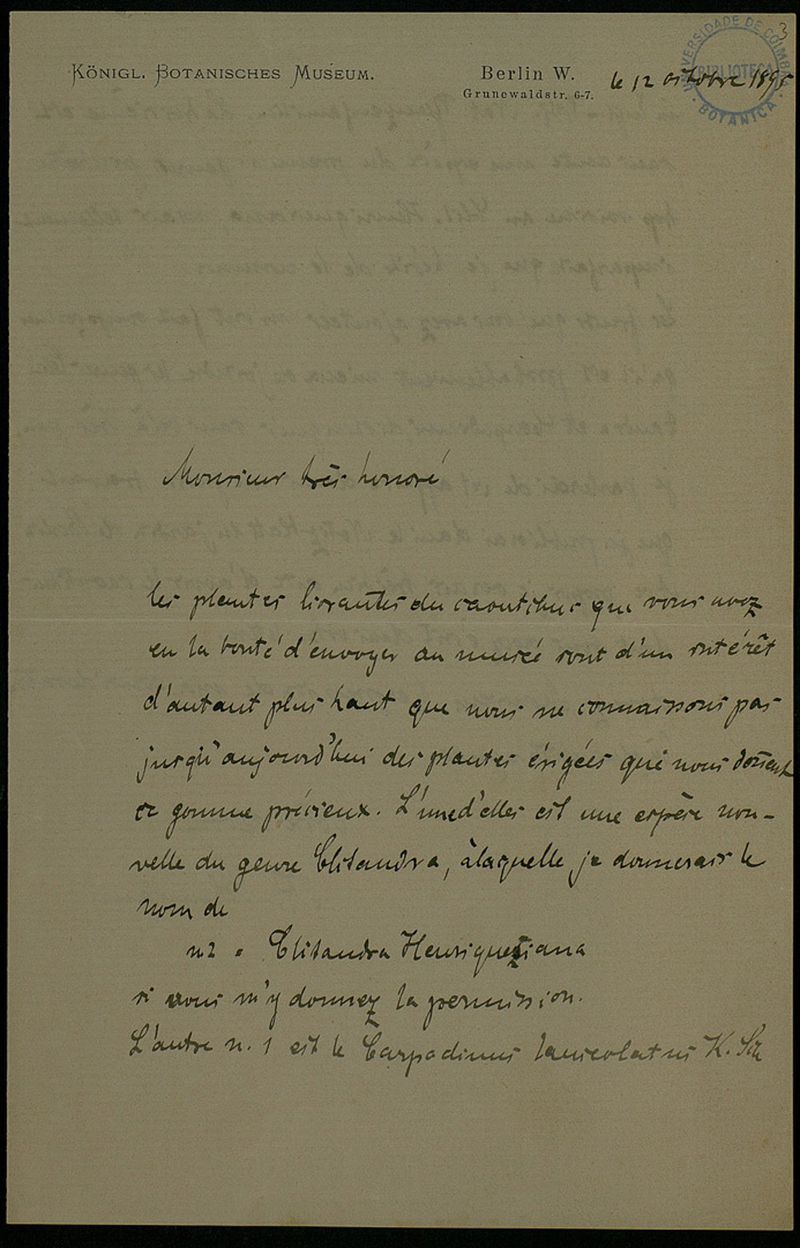 3
UNIVERSIDADE DE COIMBRA
BIBLIOTECA
BOTANICA
KÖNIGL. BOTANISCHES MUSEUM.
Berlin W.
Grunewaldstr. 6-7.
le 12 octobre 1895
Monsieur très honoré
les plantes livrantes du caoutchuc que vous avez
eu la bonté d'envoyer au musée sont d'un intérêt
d'autant plus haut que nous ne connaissons pas
jusqu'aujourd'hui des plantes érigées qui nous donnent
ce gomme précieux. L'une d'elles est une espèce nou-
velle du genre Clitandra, à laquelle je donnerais le
nom de
n2 = Clitandra Henriquesiana
si vous m'y donnez la permission.
L'autre n. 1 est le Carpodinus lanceolatus K. Sch